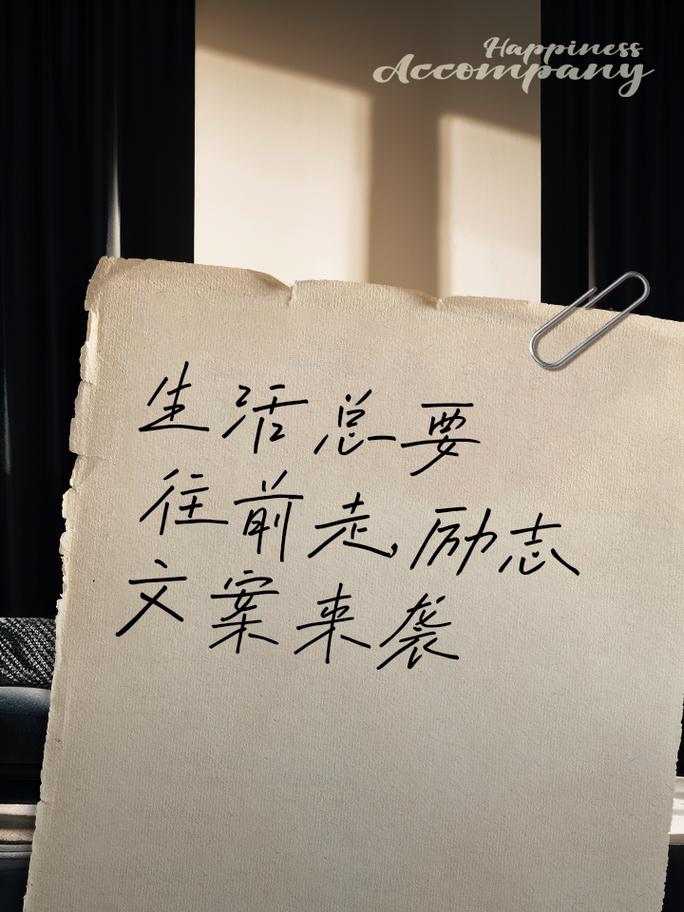 Happiness
Accompany
生活总要
往前走,励志
文案来袭